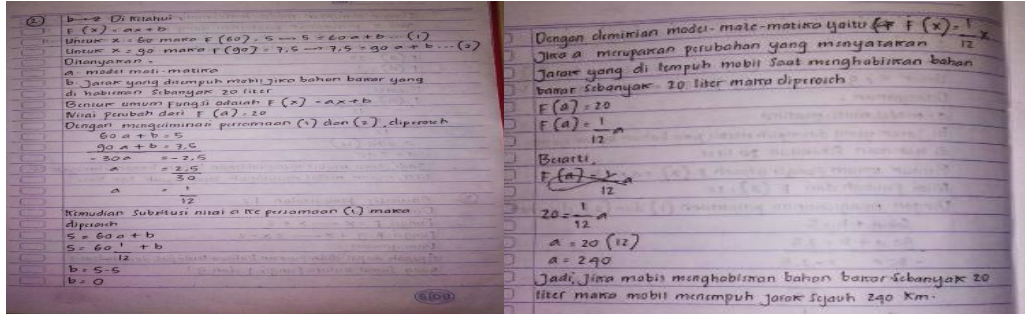 ② Diketahui :
F (x) = ax + b
Untuk x = 60 maka F (60) = 5 → 5 = 60 a + b ... (1)
Untuk x = 90 maka F (90) = 7,5 → 7,5 = 90 a + b ... (2)
Ditanyakan :
a. model mate-matika
b. Jarak yang ditempuh mobil Jika bahan bakar yang
di habiskan Sebanyak 20 liter
Bentuk umum Fungsi adalah F (x) = ax + b
Nilai Perubah dari F (a) = 20
Dengan mengeliminasi persamaan (1) dan (2), diperoleh
60 a + b = 5
90 a + b = 7,5
- 30 a = - 2,5
a = 2,5
30
a = 1
12
Kemudian Subsitusi nilai a ke persamaan (1) maka
diperoleh
5 = 60 a + b
5 = 60 1 + b
12
b = 5 - 5
b = 0
Dengan demikian model-mate-matika yaitu F (x) = 1 x
12
Jika a merupakan perubahan yang menyatakan
Jarak yang di tempuh mobil Saat menghabiskan bahan
bakar sebanyak 20 liter maka diperoleh
F (a) = 20
F (a) = 1 a
12
Berarti,
F (a) = 1 a
12
20 = 1 a
12
a = 20 (12)
a = 240
Jadi, Jika mobil menghabiskan bahan bakar Sebanyak 20
liter maka mobil menempuh Jarak Sejauh 240 Km.